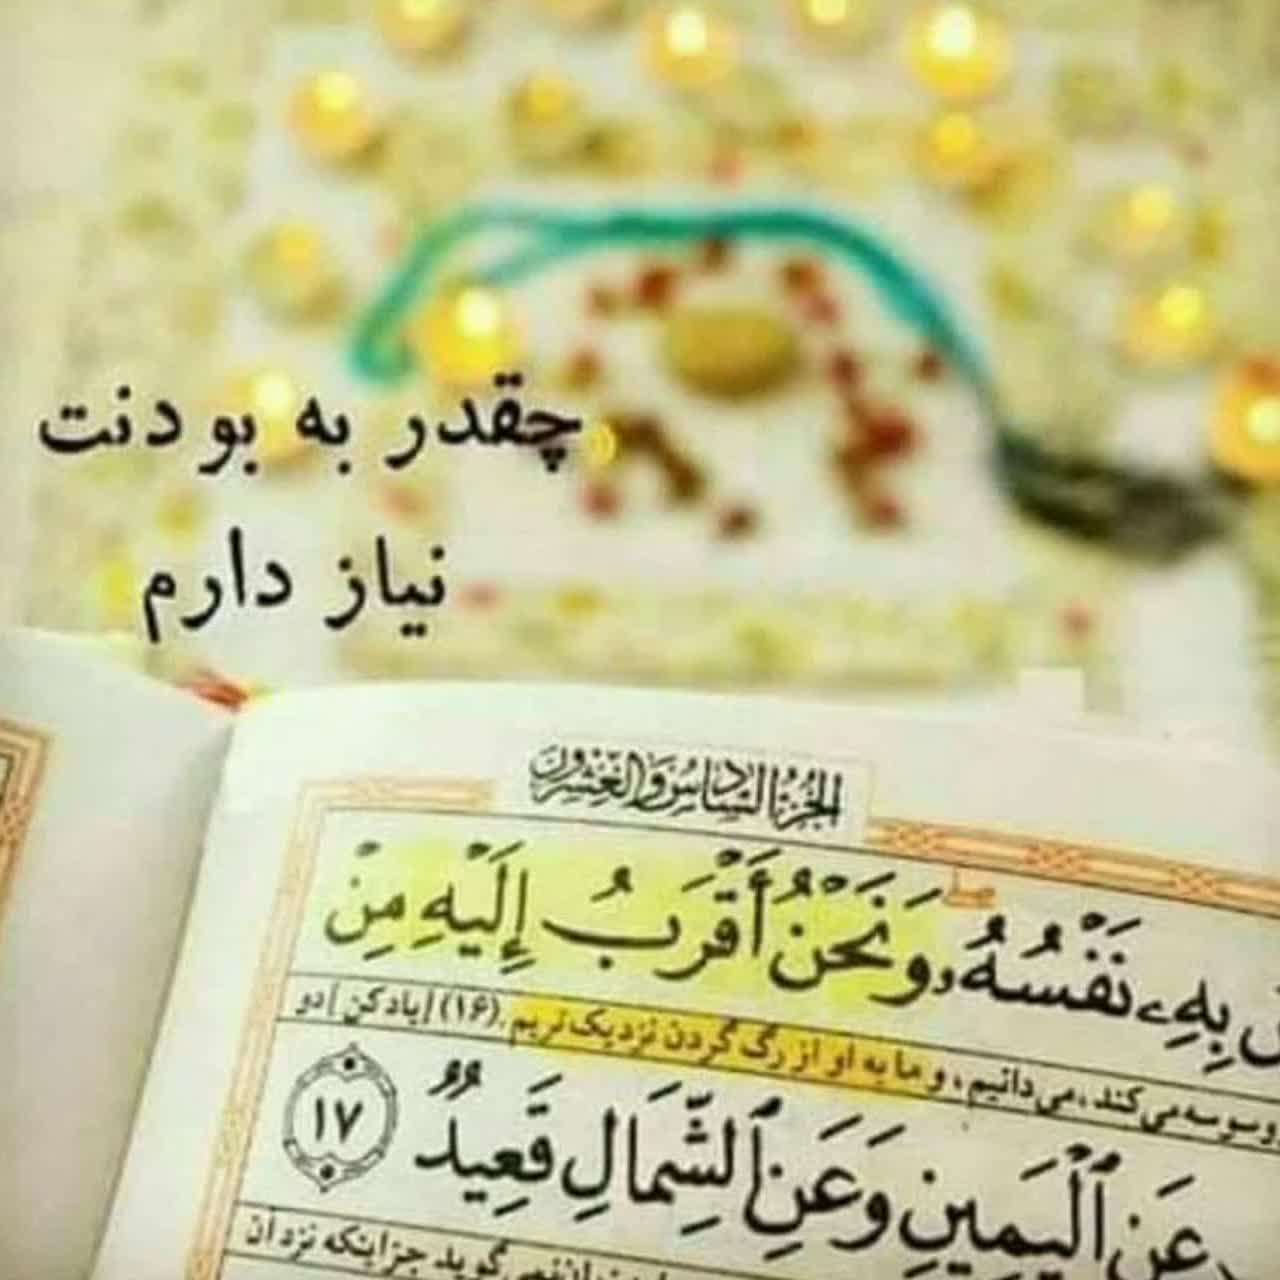 چقدر به بودنت
نیاز دارم
الجزء السادس والعشرون
بِهِ نَفْسُهُ وَنَحْنُ أَقْرَبُ إِلَيْهِ مِنْ
وسوسه می‌کند، می‌دانیم، و ما به او از رگ گردن نزدیک‌تریم. (۱۶) [یاد کن] دو
عَنِ ٱلْيَمِينِ وَعَنِ ٱلشِّمَالِ قَعِيدٌ ١٧
نمی‌گوید جز اینکه نزد آن